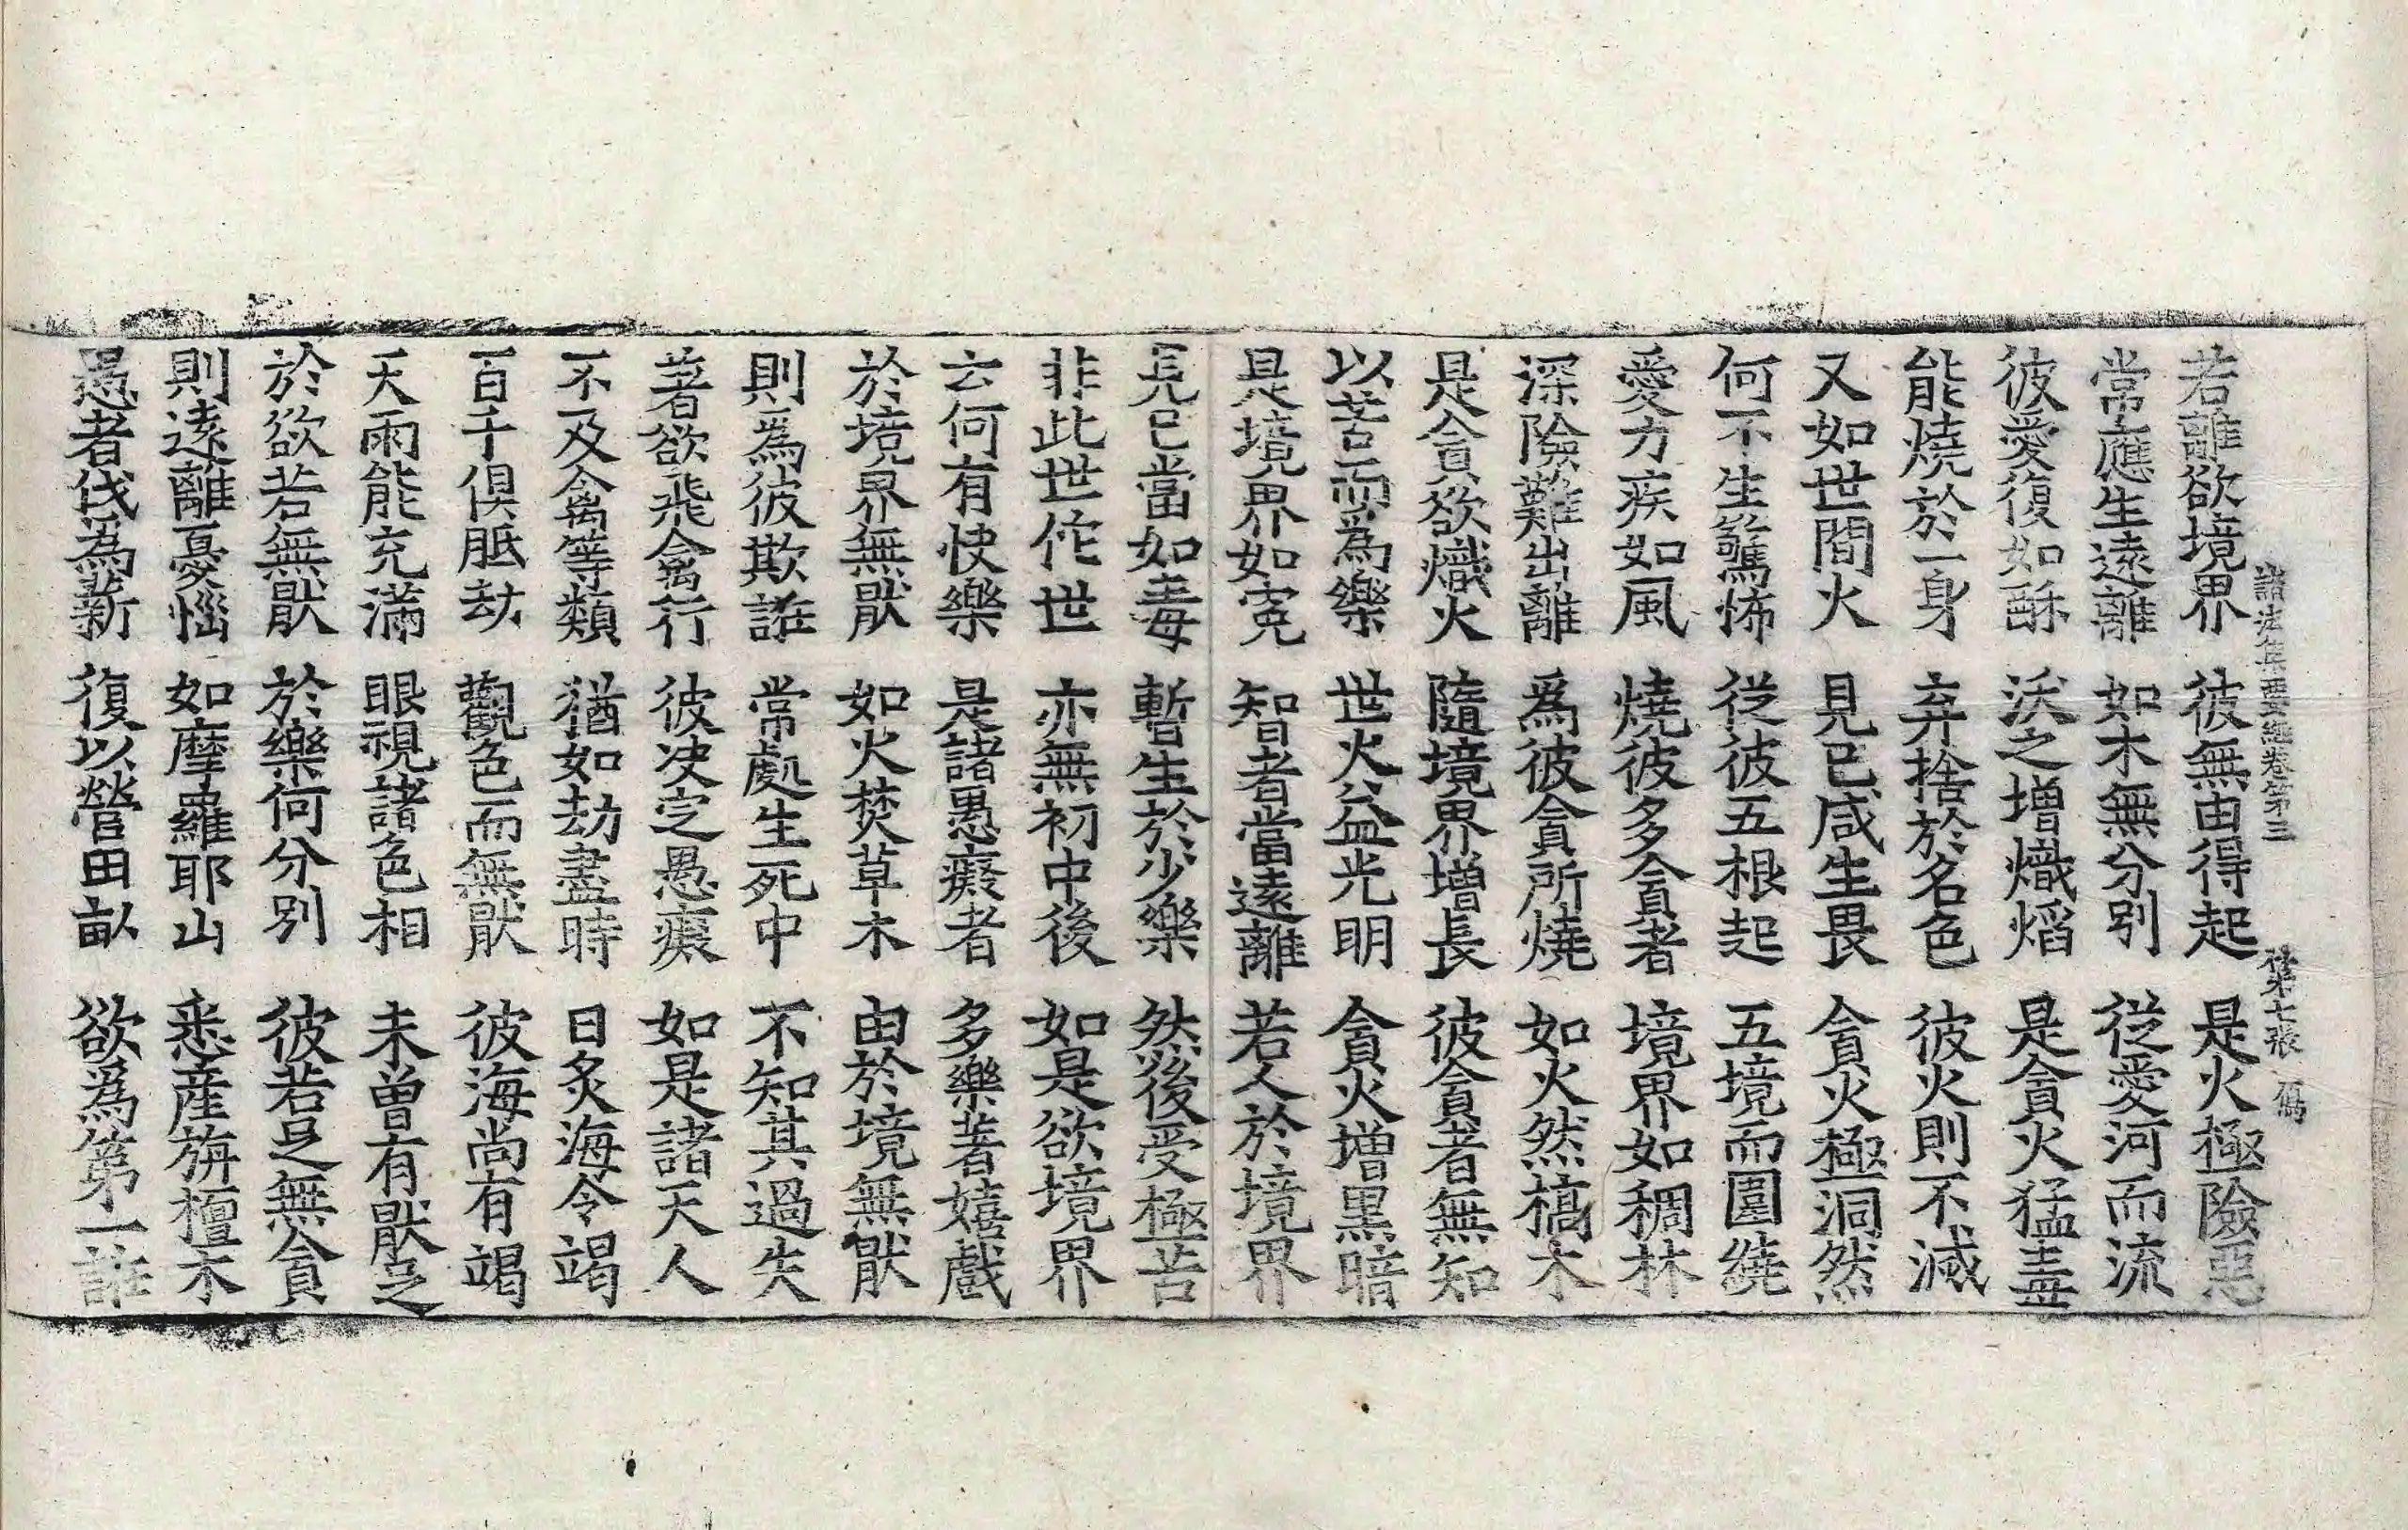 諸法集要經卷第三 第七張
若離欲境界 彼無由得起 是火極險惡
常應生遠離 如木無分別 從愛河而流
彼愛復如酥 沃之增熾焰 是貪火猛盡
能燒於一身 弃捨於名色 彼火則不滅
又如世間火 見已咸生畏 貪火極洞然
何不生驚怖 從彼五根起 五境而圍繞
愛力疾如風 燒彼多貪者 境界如稠林
深險難出離 爲彼貪所燒 如火然槁木
是貪欲熾火 隨境界增長 彼貪者無知
以苦而爲樂 世火益光明 貪火增黑暗
是境界如寃 智者當遠離 若人於境界
見已當如毒 暫生於少樂 然後受極苦
非此世佗世 亦無初中後 如是欲境界
云何有快樂 是諸愚癡者 多樂著嬉戲
於境界無猒 如火焚草木 由於境無猒
則爲彼欺誑 常處生死中 不知其過失
著欲飛禽行 彼決定愚癡 如是諸天人
不及禽等類 猶如劫盡時 日炙海令竭
百千俱胝劫 觀色而無猒 彼海尚有竭
天雨能充滿 眼視諸色相 未曾有猒足
於欲若無猒 於樂何分別 彼若足無貪
則遠離憂惱 如摩羅耶山 悉産旃檀木
愚者伐爲薪 復以營田畝 欲爲第一誑